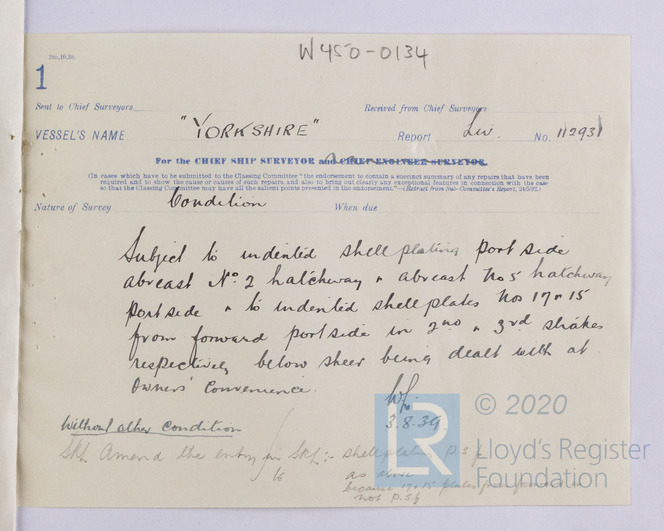 W450-0134
2m,10,38.
1
Sent to Chief Surveyors
Received from Chief Surveyors
VESSEL'S NAME "YORKSHIRE" Report Liv. No. 112931
For the CHIEF SHIP SURVEYOR and CHIEF ENGINEER SURVEYOR.
(In cases which have to be submitted to the Classing Committee "the endorsement to contain a succinct summary of any repairs that have been
required and to show the cause or causes of such repairs, and also to bring out clearly any exceptional features in connection with the case
so that the Classing Committee may have all the salient points presented in the endorsement."—(Extract from Sub-Committee's Report, 24/5/92.)
Nature of Survey Condition When due
Subject to indented shell plating port side
abreast No. 2 hatchway & abreast No 5 hatchway
port side & to indented shell plates Nos 17 & 15
from forward port side in 2nd & 3rd strakes
respectively below sheer being dealt with at
Owners' Convenience.
3.8.39
Without other condition
Amend the entry in :- shell plating P.S.
as above
because 17 & 15 plates from forward
not P.S.
© 2020
LR
Lloyd's Register
Foundation